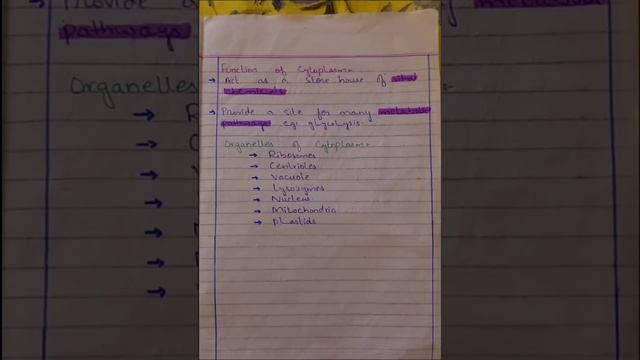 Function of Cytoplasm:-
→ Act as a store house of vital
chemicals
→ Provide a site for many metabolic
pathways e.g: glycolysis.
Organelles of Cytoplasm:-
→ Ribosomes
→ Centrioles
→ Vacuole
→ Lysozymes
→ Nucleus
→ Mitochondria
→ Plastids